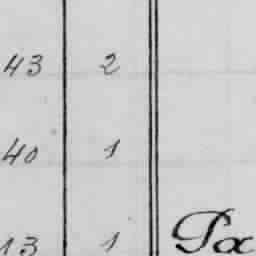 43 2
40 1
13 1 Pa